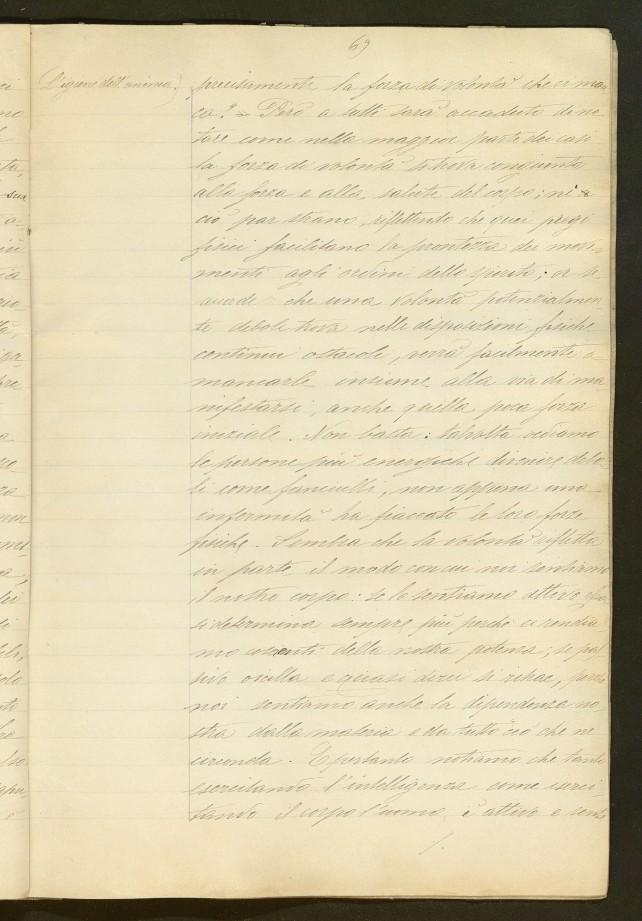 69
L'igiene dell'anima.)
precisamente la forza di volontà che ci man
ca? - Però a tutti sarà accaduto di no
tare come nella maggior parte dei casi
la forza di volontà si trova congiunta
alla forza e alla salute del corpo; nè
ciò par strano, riflettendo che quei pregi
fisici facilitano la prontezza dei movi
menti agli ordini dello spirito; or se
accade che una volontà potenzialmen
te debole trova nelle disposizioni fisiche
continui ostacoli, verrà facilmente a
mancarle insieme alla via di ma
nifestarsi, anche quella poca forza
iniziale. Non basta: talvolta vediamo
le persone più energiche divenire debo
li come fanciulli, non appena una
infermità ha fiaccato le loro forze
fisiche. Sembra che la volontà rifletta
in parte il modo con cui noi sentiamo
il nostro corpo: se lo sentiamo attivo
si determina sempre più perchè ci rendia
mo coscienti della nostra potenza; se pas
sivo oscilla e quasi direi si ritrae, perchè
noi sentiamo anche la dipendenza no
stra dalla materia e da tutto ciò che ne
circonda. E pertanto notiamo che tanto
esercitando l'intelligenza come eserci
tando il corpo l'uomo è attivo e sente